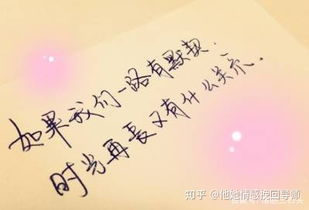 如果我们一路有默契；
时光再长又有什么关系。
知乎 @他她情感挽回导师